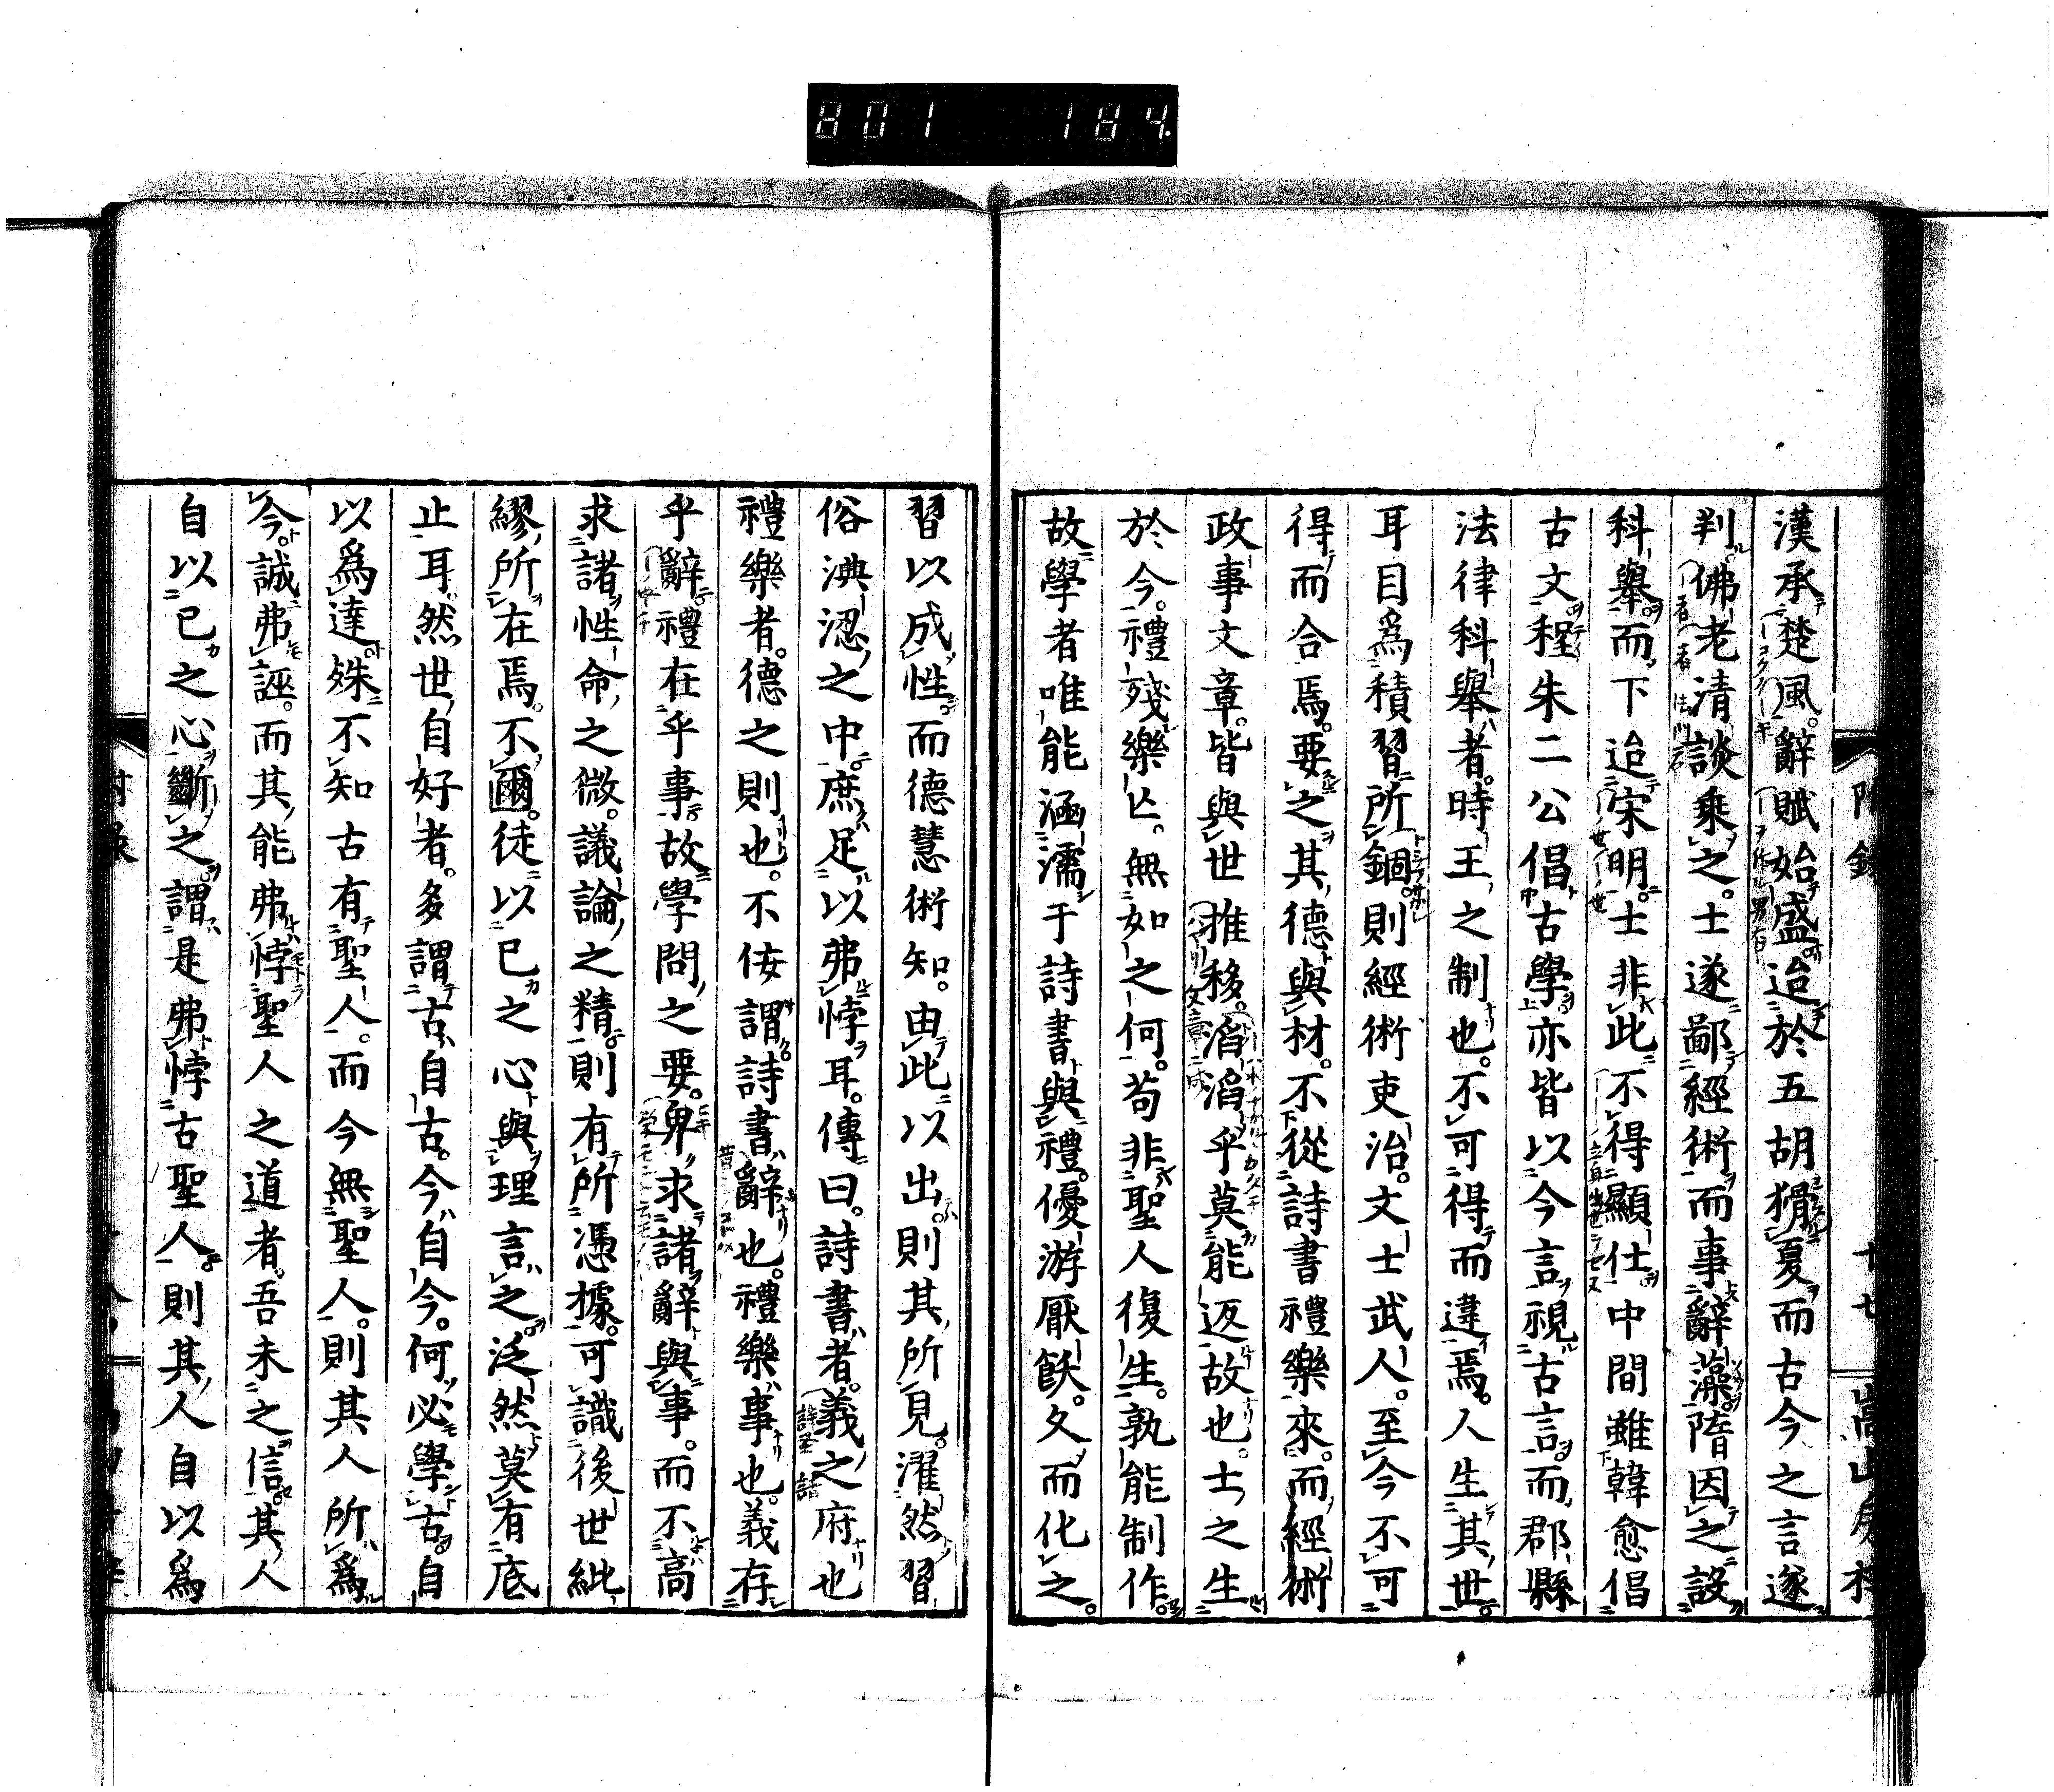 801 184
附錄
十七
嵩山房梓
漢承楚風。辭賦始盛。迨於五胡猾夏。而古今之言遂
判。佛老清談乘之。士遂鄙經術而事辭藻。隋因之設
科舉。而下迨宋明。士非此不得顯仕。中間雖韓愈倡
古文。程朱二公倡古學。亦皆以今言視古言。而郡縣
法律科舉者。時王之制也。不可得而違焉。人生其世。
耳目爲積習所錮。則經術吏治。文士武人。至今不可
得而合焉。要之其德與材。不從詩書禮樂來。而經術
政事文章。皆與世推移。滔滔乎莫能返故也。士之生
於今。禮殘樂亡。無如之何。苟非聖人復生。孰能制作。
故學者唯能涵濡于詩書與禮。優游厭飫。久而化之。
習以成性。而德慧術知。由此以出。則其所見。濯然習
俗淟涊之中。庶足以弗悖耳。傳曰。詩書者。義之府也
禮樂者。德之則也。不佞謂詩書辭也。禮樂事也。義存
乎辭。禮在乎事。故學問之要。卑求諸辭與事。而不高
求諸性命之微。議論之精。則有所憑據。可識後世紕
繆所在焉。不爾。徒以己之心與理言之。泛然莫有底
止耳。然世自好者。多謂古自古。今自今。何必學古。自
以爲達。殊不知古有聖人。而今無聖人。則其人所爲
今。誠弗誣。而其能弗悖聖人之道者。吾未之信。其人
自以己之心斷之。謂是弗悖古聖人。則其人自以爲
附錄